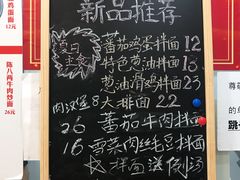 新品推荐
夏日主食
番茄鸡蛋拌面 12
特色葱油拌面 16
葱油滑鸡拌面 23
肉沫 8 大排面 22
26 番茄牛肉拌面
16 雪菜肉丝毛豆拌面
拌面送例汤
鸡蛋面
12元
陈八两牛肉炒面
26元
尊
的
跳